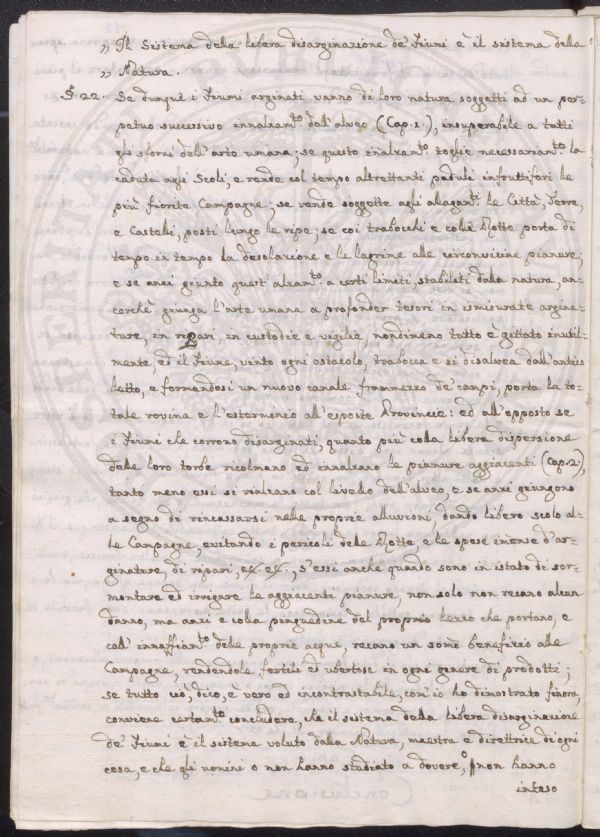 „ Il sistema della libera disarginazione de' Fiumi è il sistema della
„ Natura.
§. 22. Se dunque i Fiumi arginati vanno di loro natura soggetti ad un per-
petuo successivo innalzam.to dell'alveo (Cap. 1.), insuperabile a tutti
gli sforzi dell'arte umana; se questo inalzam.to toglie necessariam.te la
caduta agli Scoli, e rende col tempo altrettanti paduli infruttiferi le
più fiorite Campagne; se rende soggette agli allagam.ti le Città, Terre,
e Castelli, posti lungo le ripe; se coi trabocchi e colle Rotte porta di
tempo in tempo la desolazione e le lagrime alle circonvicine pianure;
e se anzi giunto quest'alzam.to a certi limiti, stabiliti dalla natura, an-
corchè giunga l'arte umana a profonder tesori in ismisurate argina-
ture, in ripari, in custodie e vigilie, nondimeno tutto è gittato inutil-
mente, ed il Fiume, vinto ogni ostacolo, trabocca e si disalvea dall'antico
letto, e formandosi un nuovo canale frammezzo de' campi, porta la to-
tale rovina e l'esterminio all'esposte Provincie: ed all'opposto se
i Fiumi che corrono disarginati, quanto più colla libera dispersione
delle loro torbe ricolmano ed innalzano le pianure aggiacenti (Cap. 2.),
tanto meno essi si rialzano col livello dell'alveo, e se anzi giungono
a segno di rincassarsi nelle proprie alluvioni, dando libero scolo al-
le Campagne, evitando i pericoli delle Rotte e le spese imense d'ar-
ginature, di ripari, ec. ec., s'essi anche quando sono in istato di sor-
montare ed irrigare le aggiacenti pianure, non solo non recano alcun
danno, ma anzi e colla pinguedine del proprio lezzo che portano, e
coll'innaffiam.to delle proprie acque, recano un somo benefizio alle
Campagne, rendendole fertili ed ubertose in ogni genere di prodotti;
se tutto ciò, dico, è vero ed incontrastabile, com'io ho dimostrato finora,
conviene certam.te concludere, che il sistema della libera disarginazione
de' Fiumi è il sistema voluto dalla Natura, maestra e direttrice di ogni
cosa, e che gli uomini o non hanno studiato a dovere, o non hanno
inteso